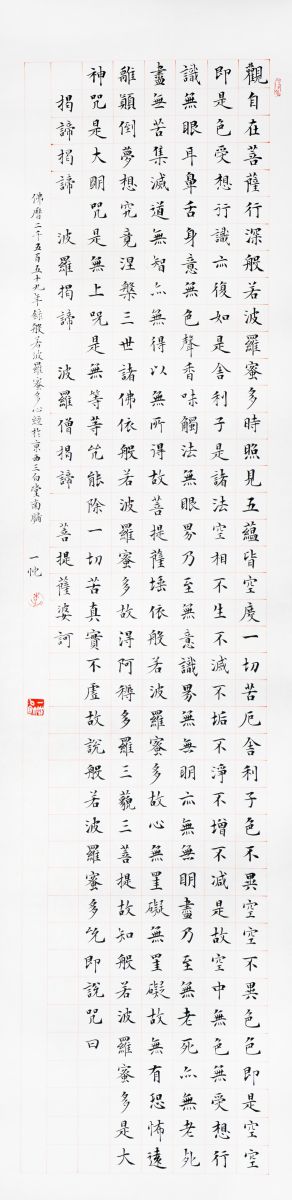 觀自在菩薩行深般若波羅蜜多時照見五蘊皆空度一切苦厄舍利子色不異空空不異色色即是空空
即是色受想行識亦復如是舍利子是諸法空相不生不滅不垢不淨不增不減是故空中無色無受想行
識無眼耳鼻舌身意無色聲香味觸法無眼界乃至無意識界無無明亦無無明盡乃至無老死亦無老死
盡無苦集滅道無智亦無得以無所得故菩提薩埵依般若波羅蜜多故心無罣礙無罣礙故無有恐怖遠
離顛倒夢想究竟涅槃三世諸佛依般若波羅蜜多故得阿耨多羅三藐三菩提故知般若波羅蜜多是大
神咒是大明咒是無上咒是無等等咒能除一切苦真實不虛故說般若波羅蜜多咒即說咒曰
揭諦揭諦 波羅揭諦 波羅僧揭諦 菩提薩婆訶
佛曆二千五百五十九年錄般若波羅蜜多心經於京西三白堂南牖 一忱